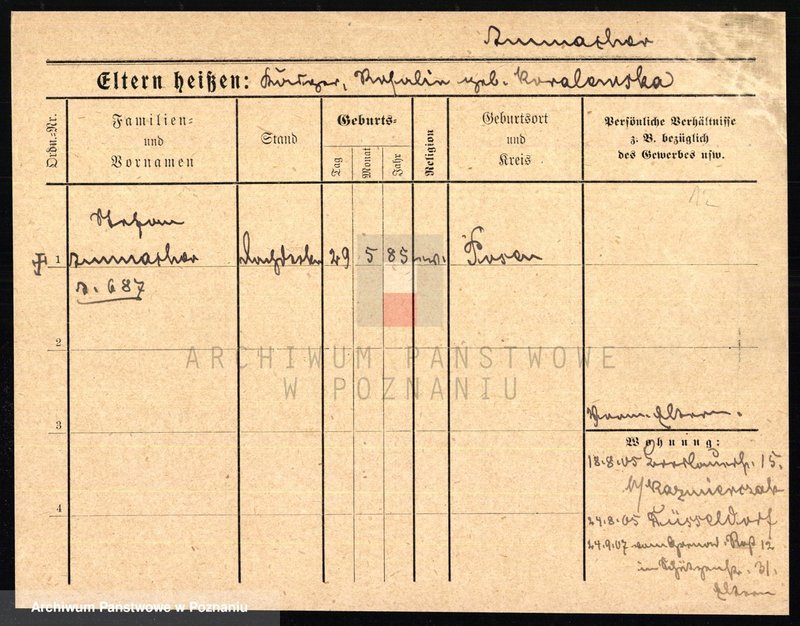 Ammacher
Eltern heißen: Rosalie geb. Koralewska
Ordn.-Nr.
Familien- und Vornamen
Stand
Geburts-
Tag
Monat
Jahr
Religion
Geburtsort und Kreis
Persönliche Verhältnisse
z. B. bezüglich
des Gewerbes usw.
12
Stefan
1 Ammacher Dachdecker 29 5 85 Posen
s. 687
2
ARCHIWUM PAŃSTWOWE
W POZNANIU
3
Eltern.
Wohnung:
18.8.05 Breslauerstr. 15.
b/Kazmierczak
4
24.8.05 Düsseldorf
24.9.07 vom 12
in Schützenstr. 31.
Eltern
Archiwum Państwowe w Poznaniu